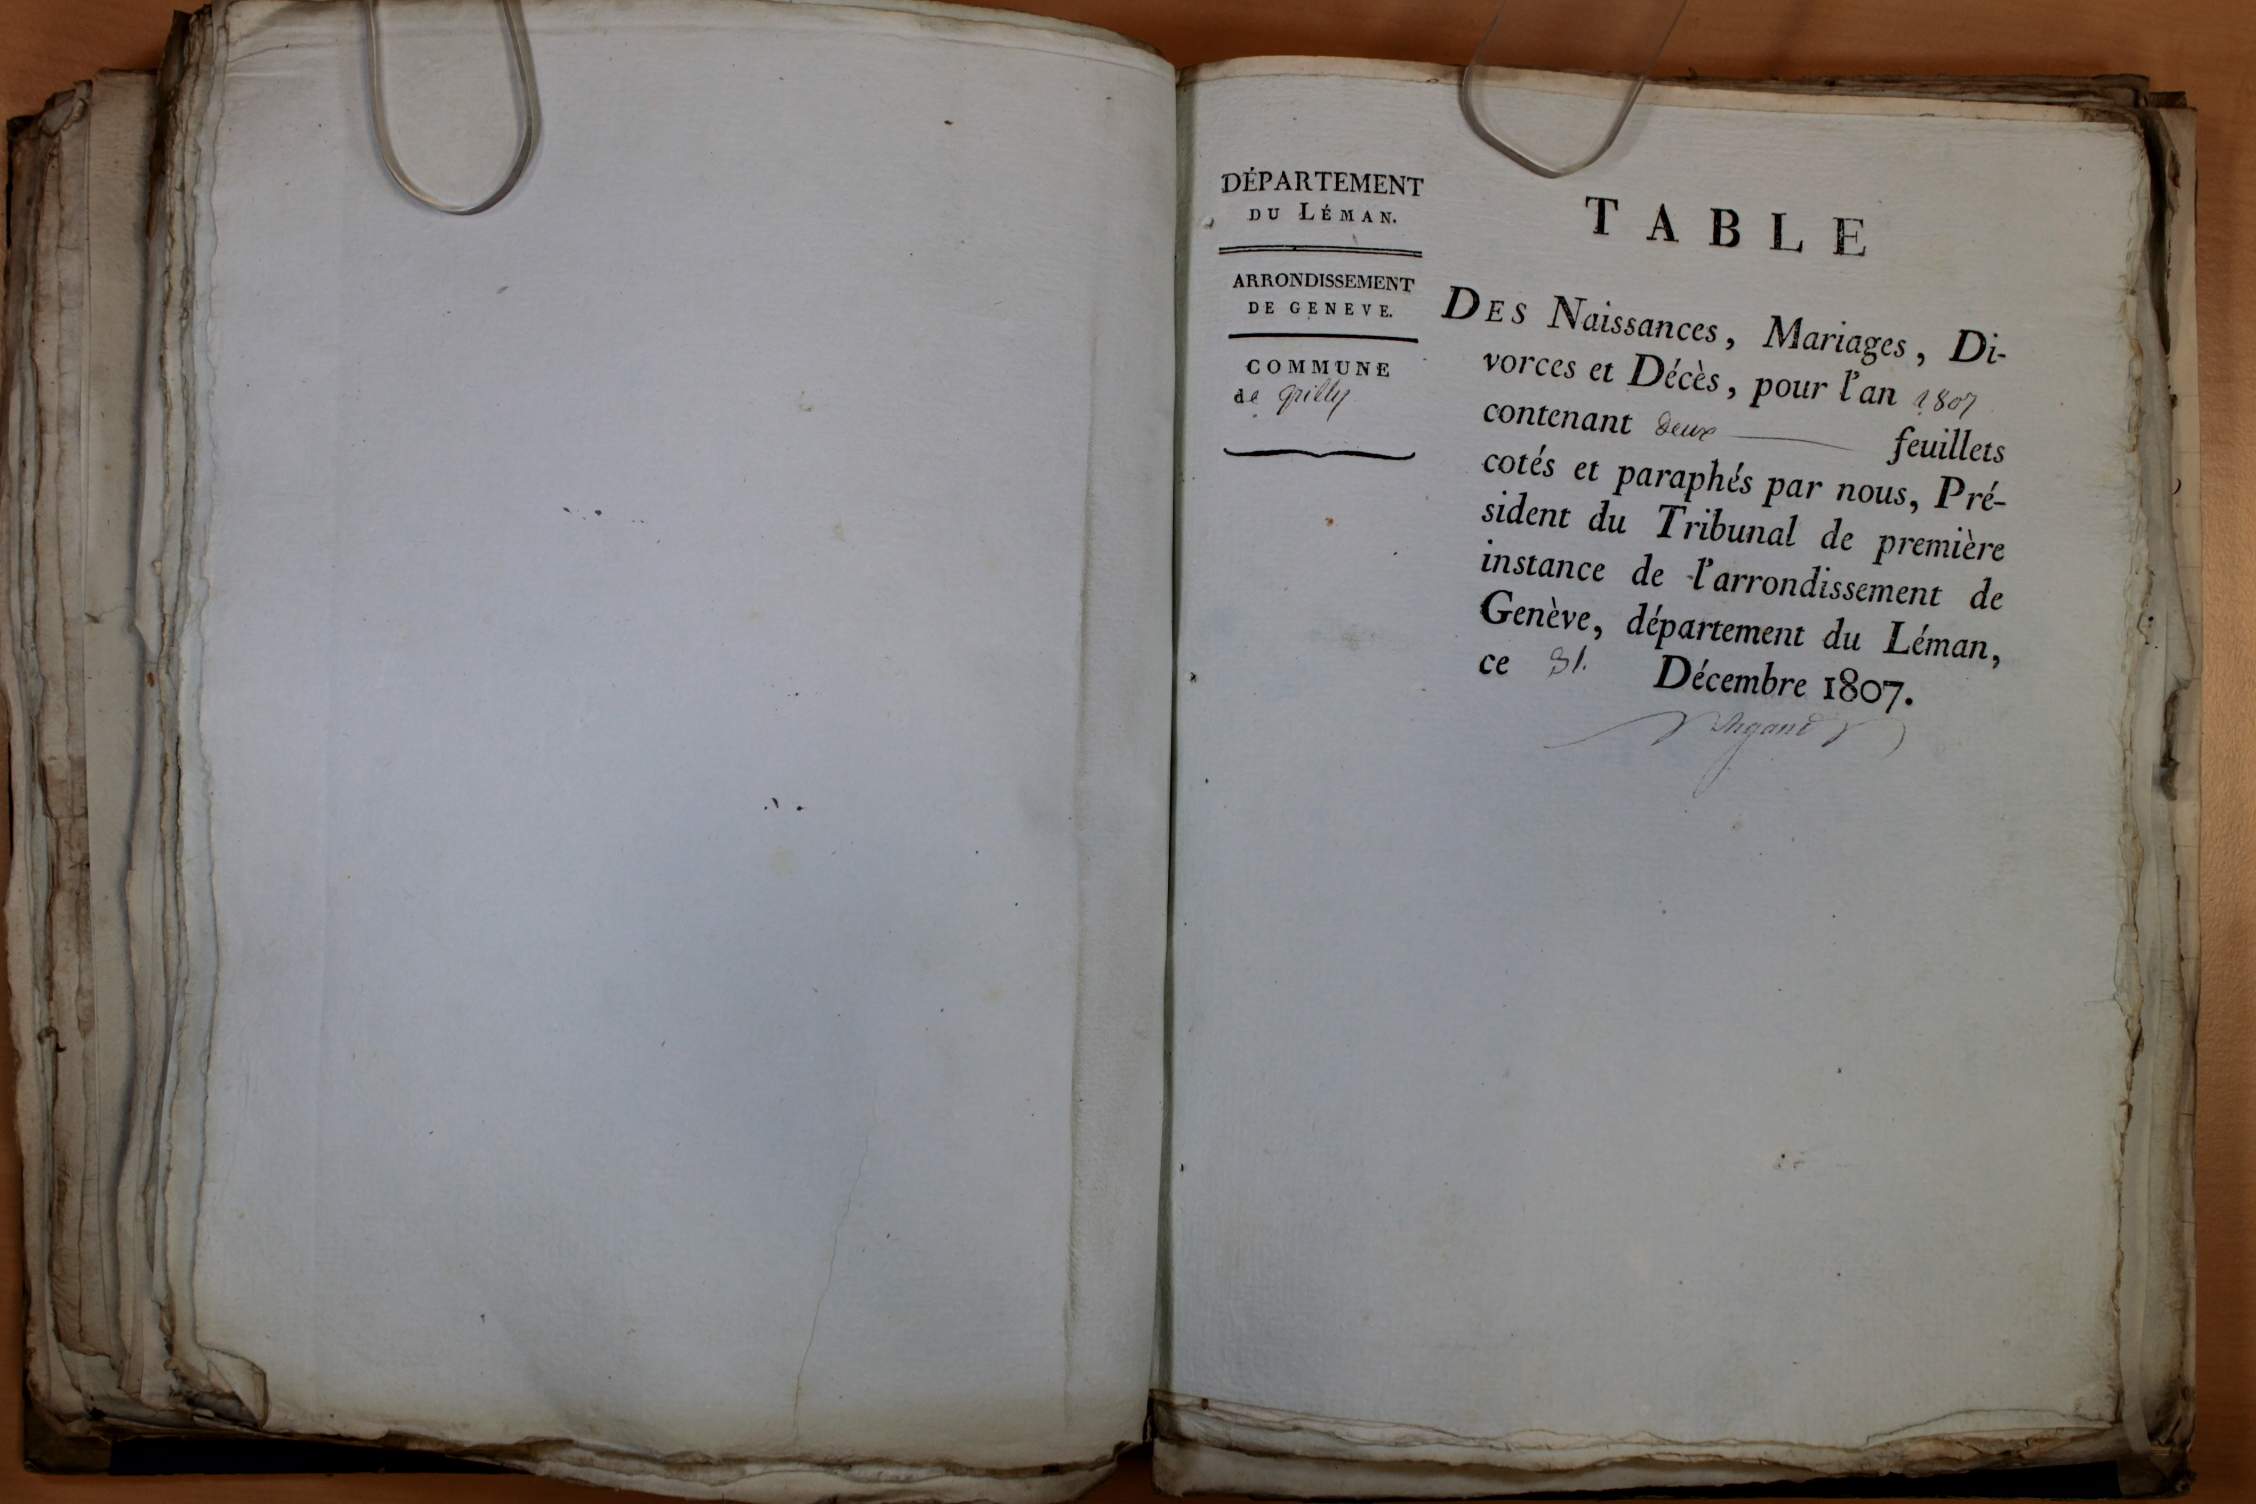 DÉPARTEMENT
DU LÉMAN.
ARRONDISSEMENT
DE GENEVE.
COMMUNE
de Grilly
TABLE
DES Naissances, Mariages, Di-
vorces et Décès, pour l'an 1807
contenant deux feuillets
cotés et paraphés par nous, Pré-
sident du Tribunal de première
instance de l'arrondissement de
Genève, département du Léman,
ce 31. Décembre 1807.
Argand